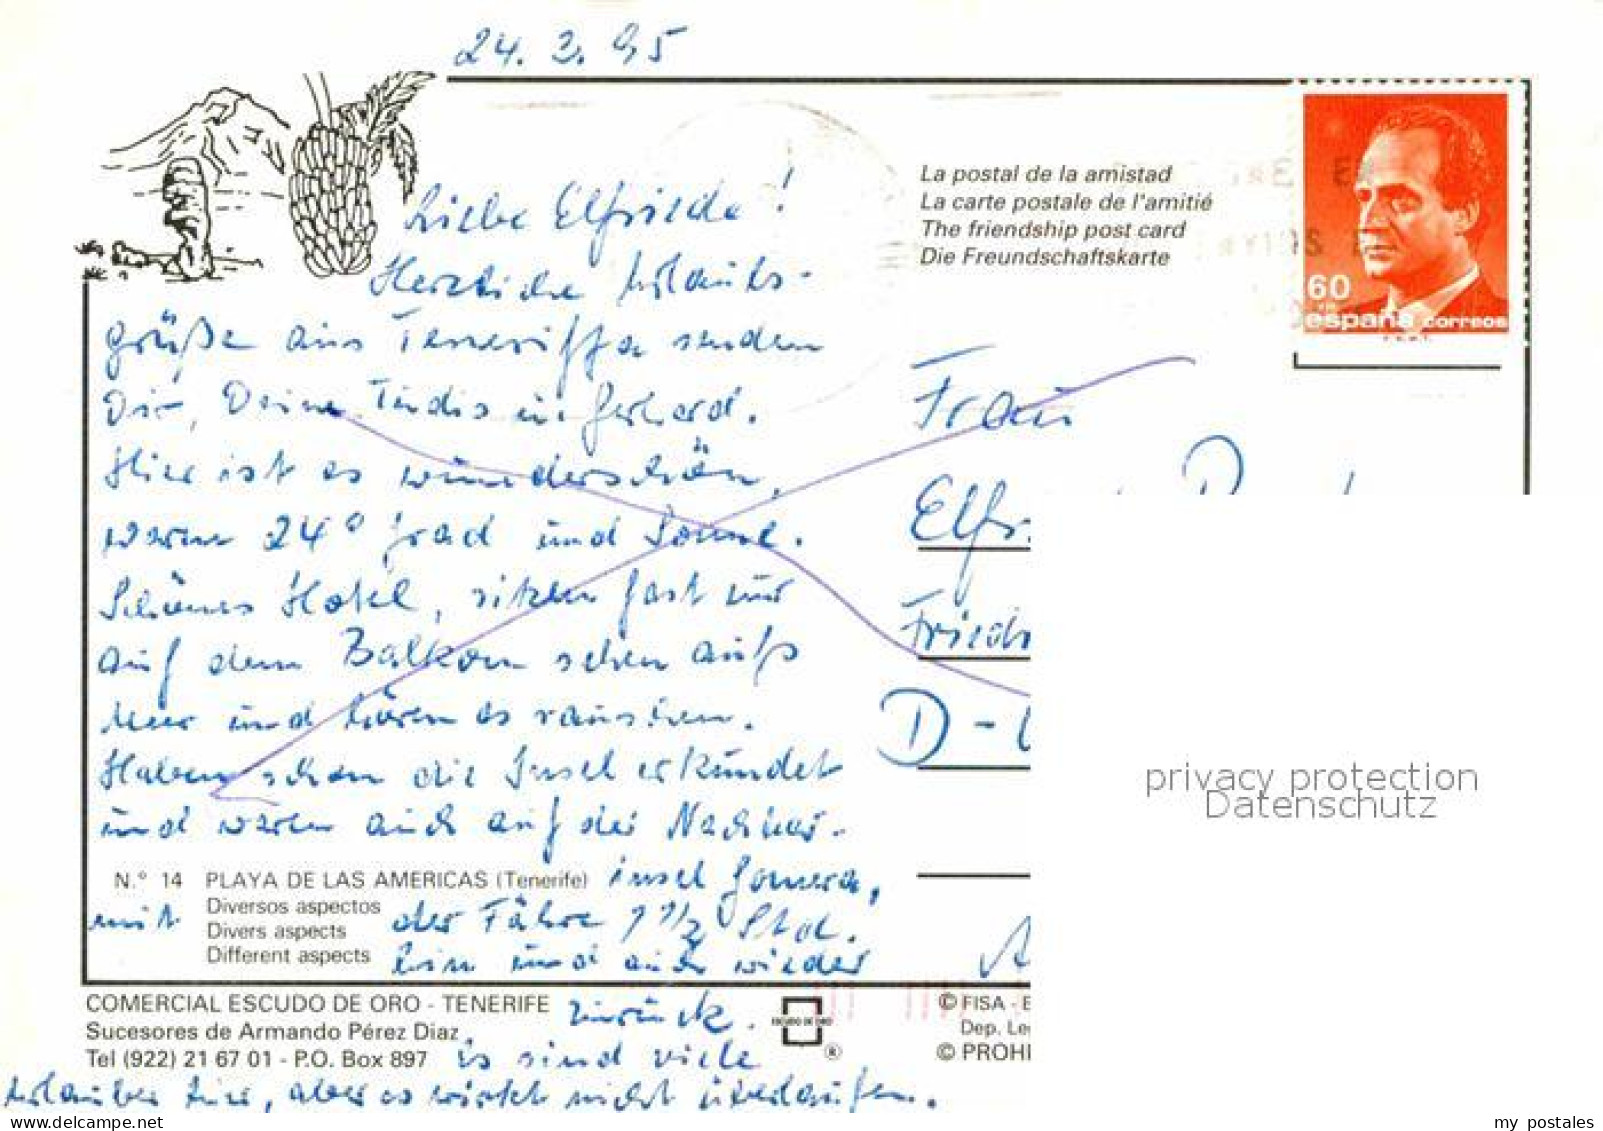 24. 3. 95
La postal de la amistad
La carte postale de l'amitié
The friendship post card
Die Freundschaftskarte
60
españa correos
Liebe Elfriede!
Herzliche Urlaubs-
grüße aus Teneriffa senden
Dir, Deine Trudis u. Gerhard.
Hier ist es wunderschön,
warm 24° Grad und Sonne.
Schönes Hotel, sitzen fast nur
auf dem Balkon sehen aufs
Meer und hören es rauschen.
Haben schon die Insel erkundet
und waren auch auf der Nachbar-
insel Gomera,
mit der Fähre 1 1/2 Std.
hin und auch wieder
zurück.
Es sind viele
Urlauber hier, aber es wirkt nicht überlaufen.
Frau
Elfr
Friedr
D -
N.° 14 PLAYA DE LAS AMERICAS (Tenerife)
Diversos aspectos
Divers aspects
Different aspects
COMERCIAL ESCUDO DE ORO - TENERIFE
Sucesores de Armando Pérez Diaz
Tel (922) 21 67 01 - P.O. Box 897
ESCUDO DE ORO
®
© FISA - E
Dep. Le
© PROHI
privacy protection
Datenschutz
my postales